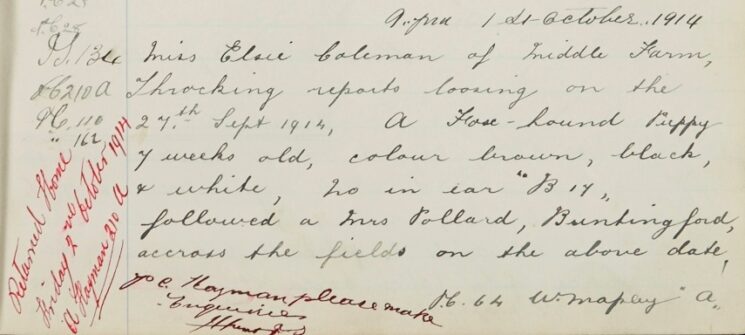 9. pm 1st October, 1914
P.S. 13
Miss Elsie Coleman of Middle Farm,
PC 210 A
Throcking reports loosing on the
PC. 110
27th. Sept 1914, A Fox-hound Puppy
" 162
7 weeks old, colour brown, black,
& white, No in ear "B 17",
followed a Mrs Pollard, Buntingford,
accross the fields on the above date,
PC. 64 W. Mapley "A"
P.C. Hayman please make
Enquiries
Returned Home
Friday 2nd October 1914
A Hayman 210 A